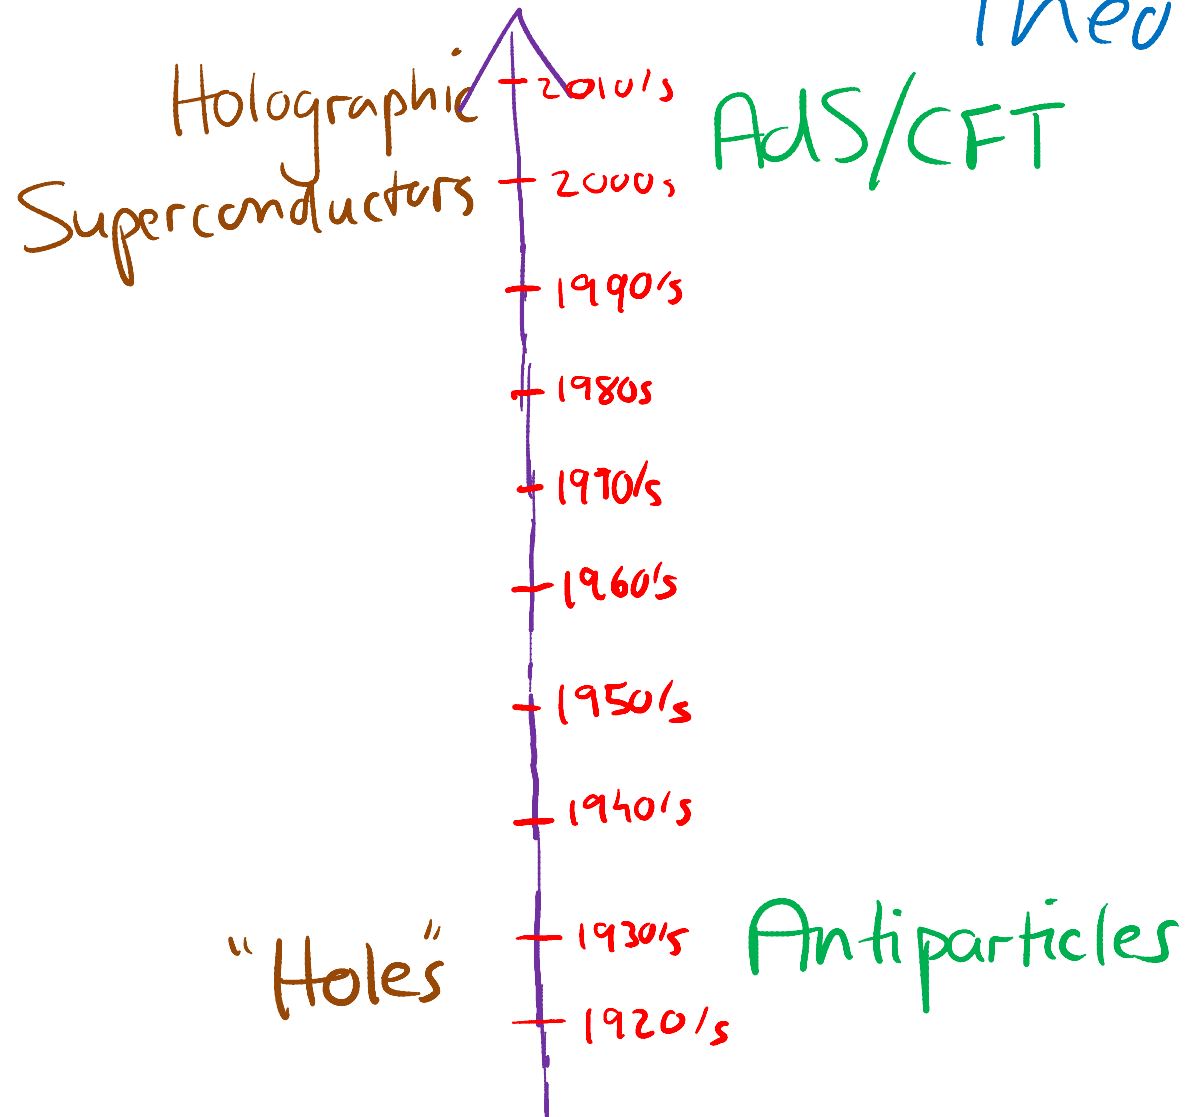 Theo
Holographic
Superconductors
2010's
AdS/CFT
2000s
1990's
1980s
1970's
1960's
1950's
1940's
1930's
"Holes"
Antiparticles
1920's